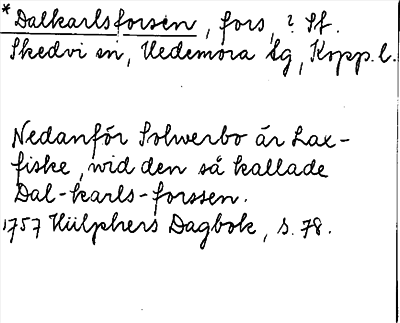 *Dalkarlsforsen, fors, ? Sf.
Skedvi sn, Vedemora tg, Kopp. l.
Nedanför Solwerbo är Lax-
fiske, wid den så kallade
Dal-karls-forssen.
1757 Hülphers Dagbok, s. 78.